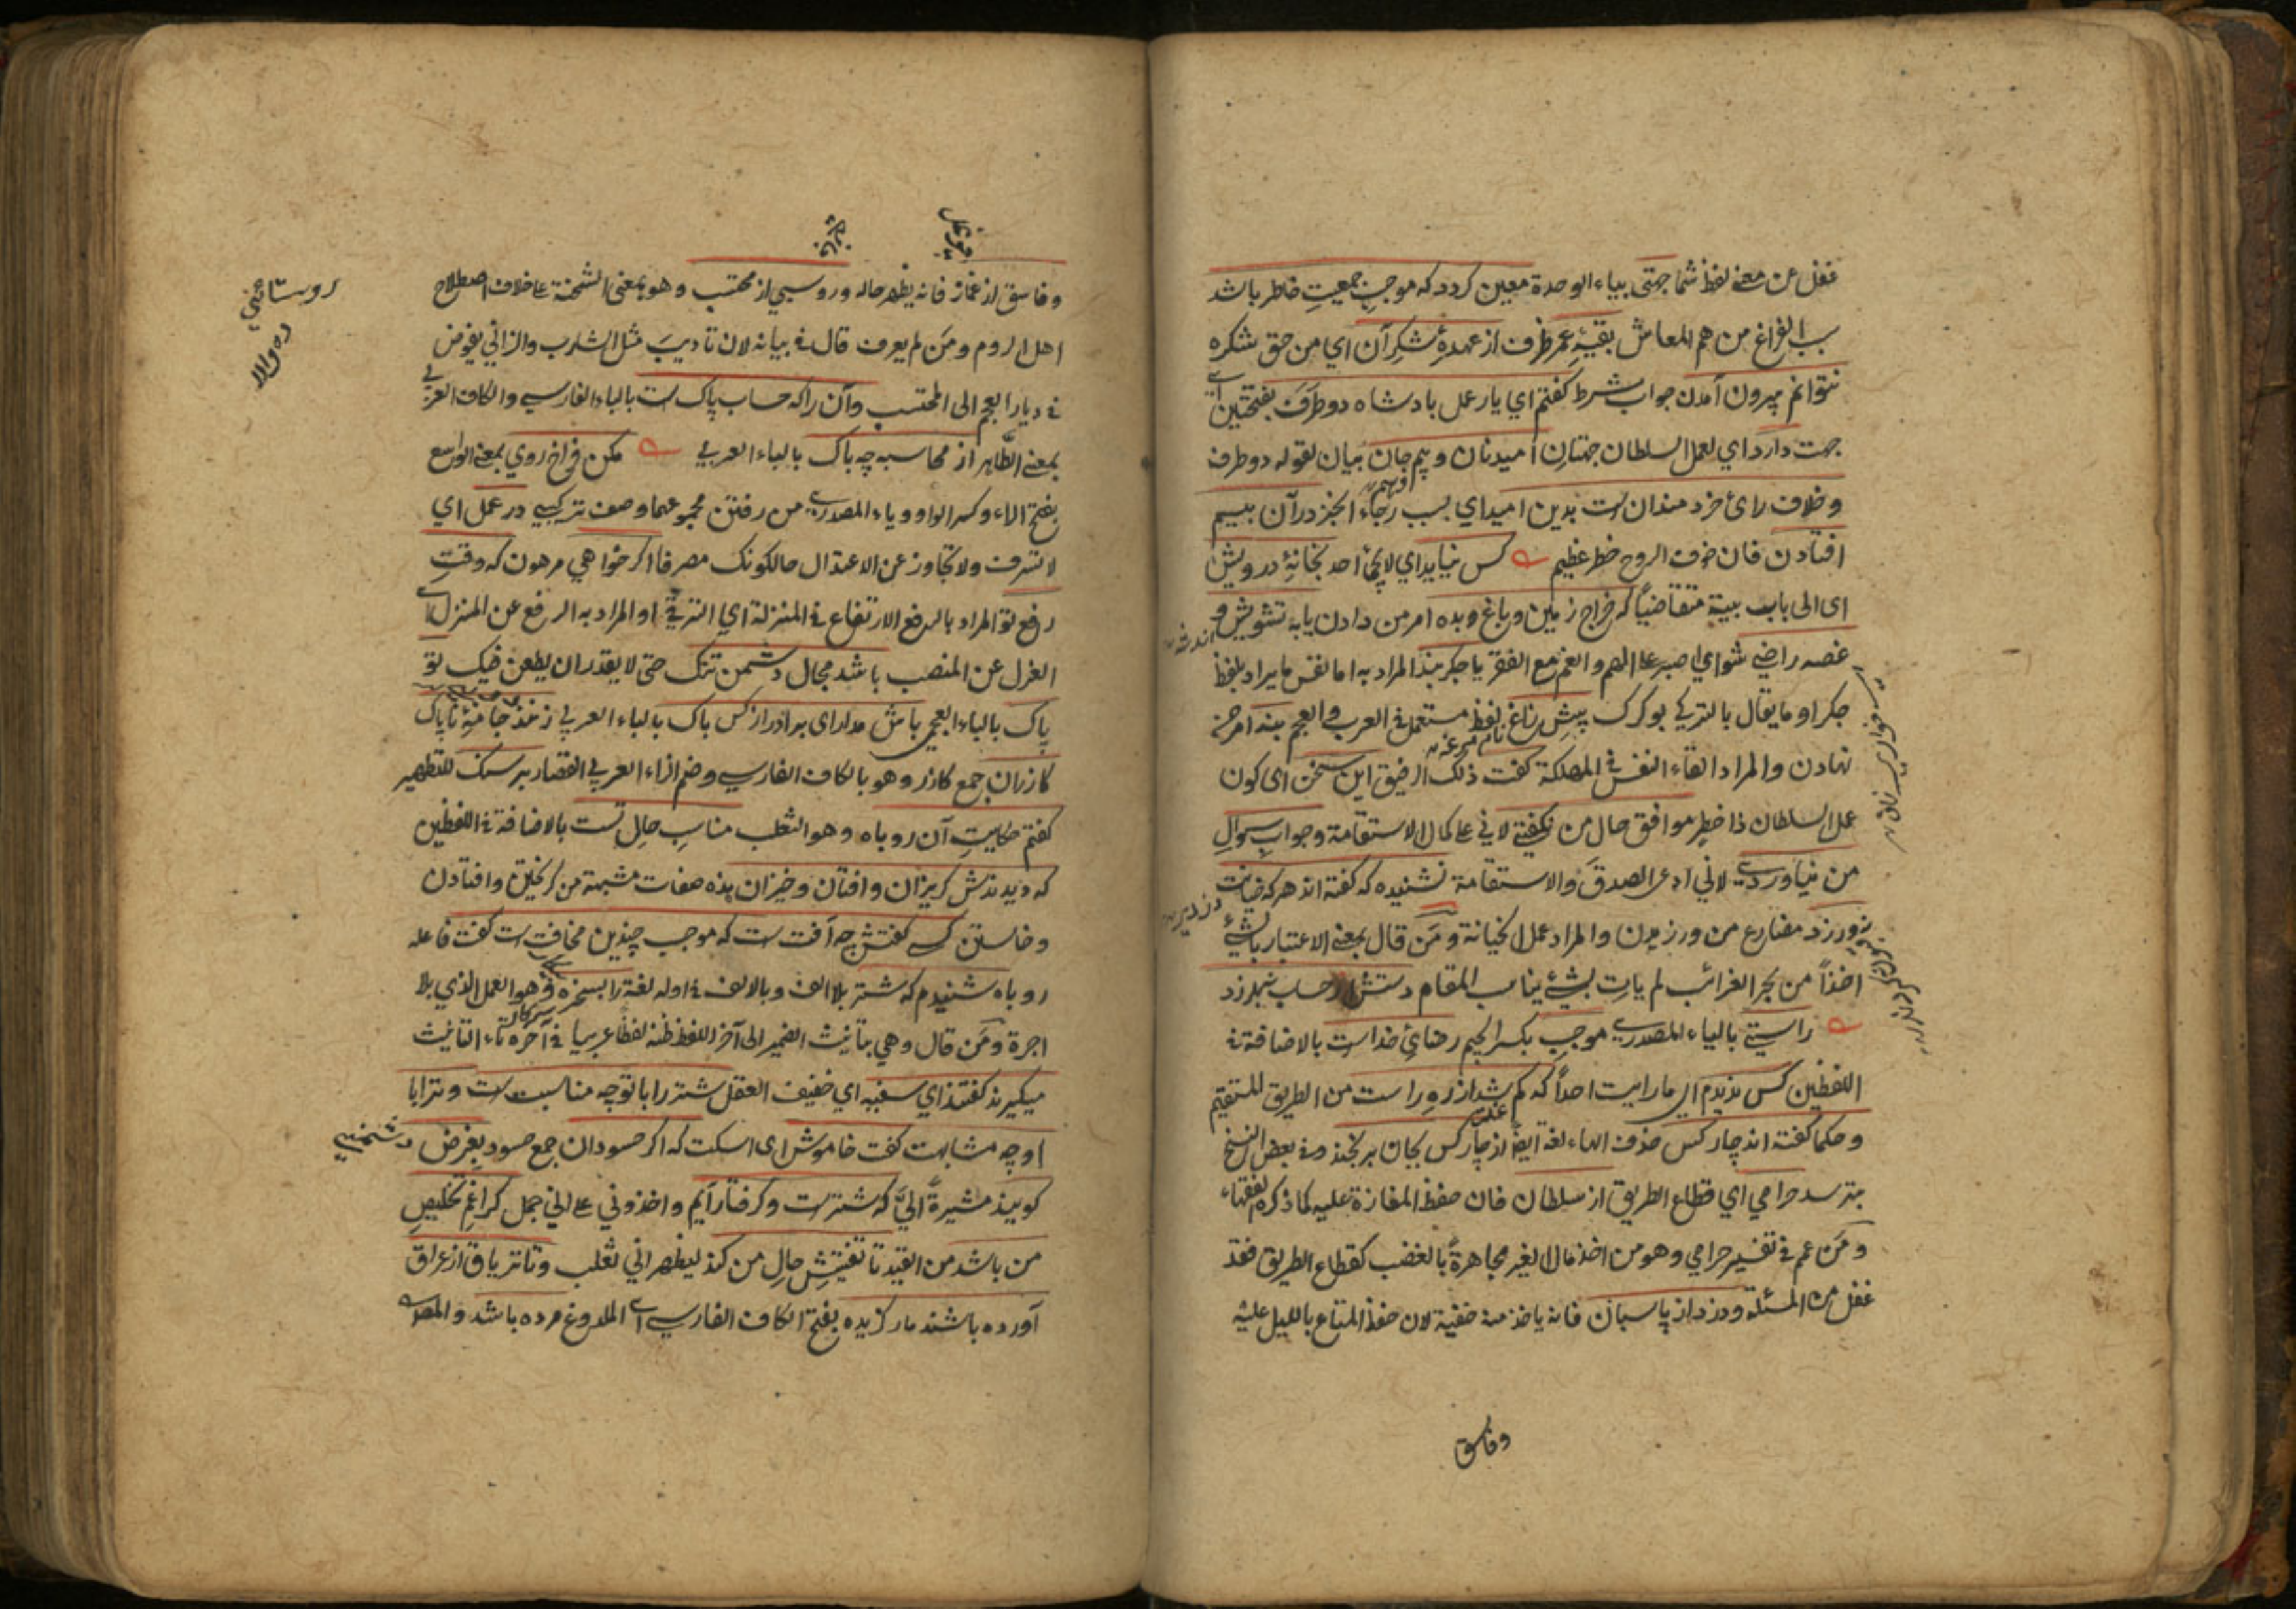 غفل عن معنى لفظ شما جهتى بياء الوحدة معين كردد كه موجب جمعيت خاطر باشد
بسبب الفراغ من هم المعاش بقيۀ عمر ظرف از عهدۀ شكر آن اي من حق شكره
نتوانم بيرون آمدن جواب شرط كفتم اي يار عمل بادشاه دو طرف بفتحتين اي
جهت دارد اي لعمل السلطان جهتان اميد نان و بيم جان بيان لقوله دو طرف
وخلاف رائ خردمندان است بدين اميد اي بسبب رجاء الخبز در آن بيم
افتادن فان خوف الروح خطر عظيم كس نيايد اي لا يجئ احد بخانۀ درويش
اى الى باب بيته متقاضيا كه خراج زمين و باغ و بده امر من دادن يا به تشويش و
غصه راضي شو اي اصبر على الهم والغم مع الفقر يا جكربند المراد به اما نفس ما يراد بلفظ
جكر او ما يقال بالتركي بوكرك پيش زاغ لفظ مستعمل في العرب والعجم بنه امر من
نهادن والمراد القاء النفس في المهلكة كفت ذلك الرفيق اين سخن اى كون
عمل السلطان ذا خطر موافق حال من نكفتي لاني على كمال الاستقامة وجواب سوال
من نياوردي لاني ادعى الصدق والاستقامة نشنيده كه كفته اند هر كه خيانت
ورزد مضارع من ورزيدن والمراد عمل الخيانة ومن قال بمعنى الاعتبار بالشئ
اخذاً من بحر الغرائب لم يات بشئ يناسب المقام دستش از حساب بلرزد
راستي بالياء المصدري موجب بكسر الجيم رضائ خداست بالاضافة في
اللفظين كس نديدم اي ما رايت احداً كه كم شد از ره راست من الطريق المستقيم
وحكما كفته اند چار كس حذف الهاء لغة ايضا از چار كس بجان برنجند وفي بعض النسخ
بترسد حرامي اي قطاع الطريق از سلطان فان حفظ المفازة عليه كما ذكره الفقهاء
ومن عمم في تفسير حرامي وهو من اخذ مال الغير مجاهرة بالغضب كقطاع الطريق فقد
غفل من المسئلة ودزد از پاسبان فانه ياخذ منه خفية لان حفظ المتاع بالليل عليه
وفاسق
وفاسق از غماز فانه يظهر حاله وروسپي از محتسب وهو بمعنى الشحنة على خلاف اصطلاح
اهل الروم ومن لم يعرف قال في بيانه لان تاديب مثل الشارب والزاني يفوض
في ديار العجم الى المحتسب وآن را كه حساب پاك است بالباء الفارسي والكاف العربي
بمعنى الطاهر از محاسبه چه باك بالباء العربي مكن فراخ روي بمعنى الواسع
بفتح الراء وكسر الواو وياء المصدري من رفتن مجموعهما وصف تركيبي در عمل اي
لا تسرف ولا تجاوز عن الاعتدال حال كونك مصرفا اكر خواهي مرهون كه وقت
رفع تو المراد بالرفع الارتفاع في المنزلة اي الترقي او المراد به الرفع عن المنزل اي
العزل عن المنصب باشد مجال دشمن تنك حتى لا يقدر ان يطعن فيك تو
پاك بالباء العجمي باش مدار اى برادر از كس باك بالباء العربي زنند جامۀ ناپاك
كازران جمع كازر وهو بالكاف الفارسي وضم الزاء العربي القصار بر سنك للتطهير
كفتم حكايت آن روباه وهو الثعلب مناسب حال تست بالاضافة في اللفظين
كه ديدندش كريزان وافتان وخيزان هذه صفات مشبهة من كريختن وافتادن
وخاستن كسي كفتش چه آفت است كه موجب چندين مخافت است كفت فاعله
روباه شنيدم كه شتر بلا الف وبالالف في اوله لغة را بسخره وهو العمل الذي بلا
اجرة ومن قال وهي بتانيث الضمير الى آخر اللفظ ظنه لفظا عربيا في آخره تاء التانيث
ميكيرند كفتند اي سفيه اي خفيف العقل شتر را با تو چه مناسبت است وترا با
او چه مشابهت كفت خاموش اى اسكت كه اكر حسودان جمع حسود بغرض
كويند مشيرة الي كه شتر است وكرفتار آيم واخذوني على اني جمل كرا غم تخليص
من باشد من القيد تا تفتيش حال من كند ليظهر اني ثعلب وتا ترياق از عراق
آورده باشند مار كزيده بفتح الكاف الفارسي اي الملدوغ مرده باشد والمصراع